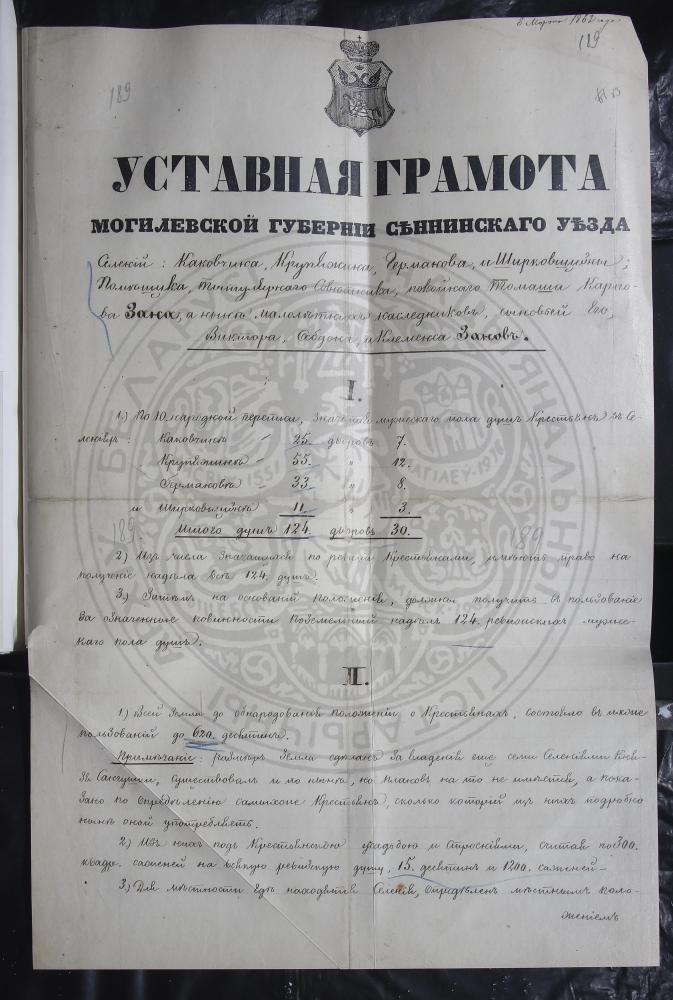 5 Марта 1862 года
189
189
УСТАВНАЯ ГРАМОТА
МОГИЛЕВСКОЙ ГУБЕРНІИ СѢННИНСКАГО УѢЗДА
Селеній: Каковчина, Крупѣжина, Германова, и Ширковщизны;
Помѣщика, Титулярнаго Совѣтника, покойнаго Томаша Карло-
ва Зана, а нынѣ малолѣтныхъ наслѣдниковъ, сыновьей Его,
Виктора, Абдона, и Клеменса Зановъ.
I.
1.) По 10. народной переписи, значится мужескаго пола душъ Крестьянъ въ Се-
леніяхъ: Каковчинѣ - 25. дворовъ 7.
Крупѣжинѣ - 55. „ 12.
Германовѣ - 33. „ 8.
и Ширковщизнѣ 11. „ 3.
Итого душъ 124. дворовъ 30.
189 189
2) Изъ числа значащихся по ревизіи Крестьянами, имѣютъ право на
полученіе надѣла всѣ 124. душъ.
3.) Затѣмъ на основаніи положенія, должны получить въ пользованіе
за обозначенные повинности поземельный надѣлъ 124. ревизскихъ муже-
скаго пола душъ.
II.
1.) Всей Земли до обнародованія положенія о Крестьянахъ, состояло въ ихъ
пользованій до 620. десятинъ.
Примѣчаніе: размѣръ Земли сдѣланъ за владенія еще семи Селеніями Кня-
зя Сангушки, существовалъ и по нынѣ, но плановъ на то не имѣется, а пока-
зано по опредѣленію самыхъ Крестьянъ, сколько который изъ нихъ подробно
нынѣ оной употребляетъ.
2.) Изъ нихъ подъ Крестьянскою усадьбою и строеніями, считая по 300.
квадр. саженей на всякую ревизскую душу, 15. десятинъ и 1200. саженей -
3.) Для мѣстности гдѣ находятся Селенія, опредѣленъ мѣстнымъ поло-
женіемъ